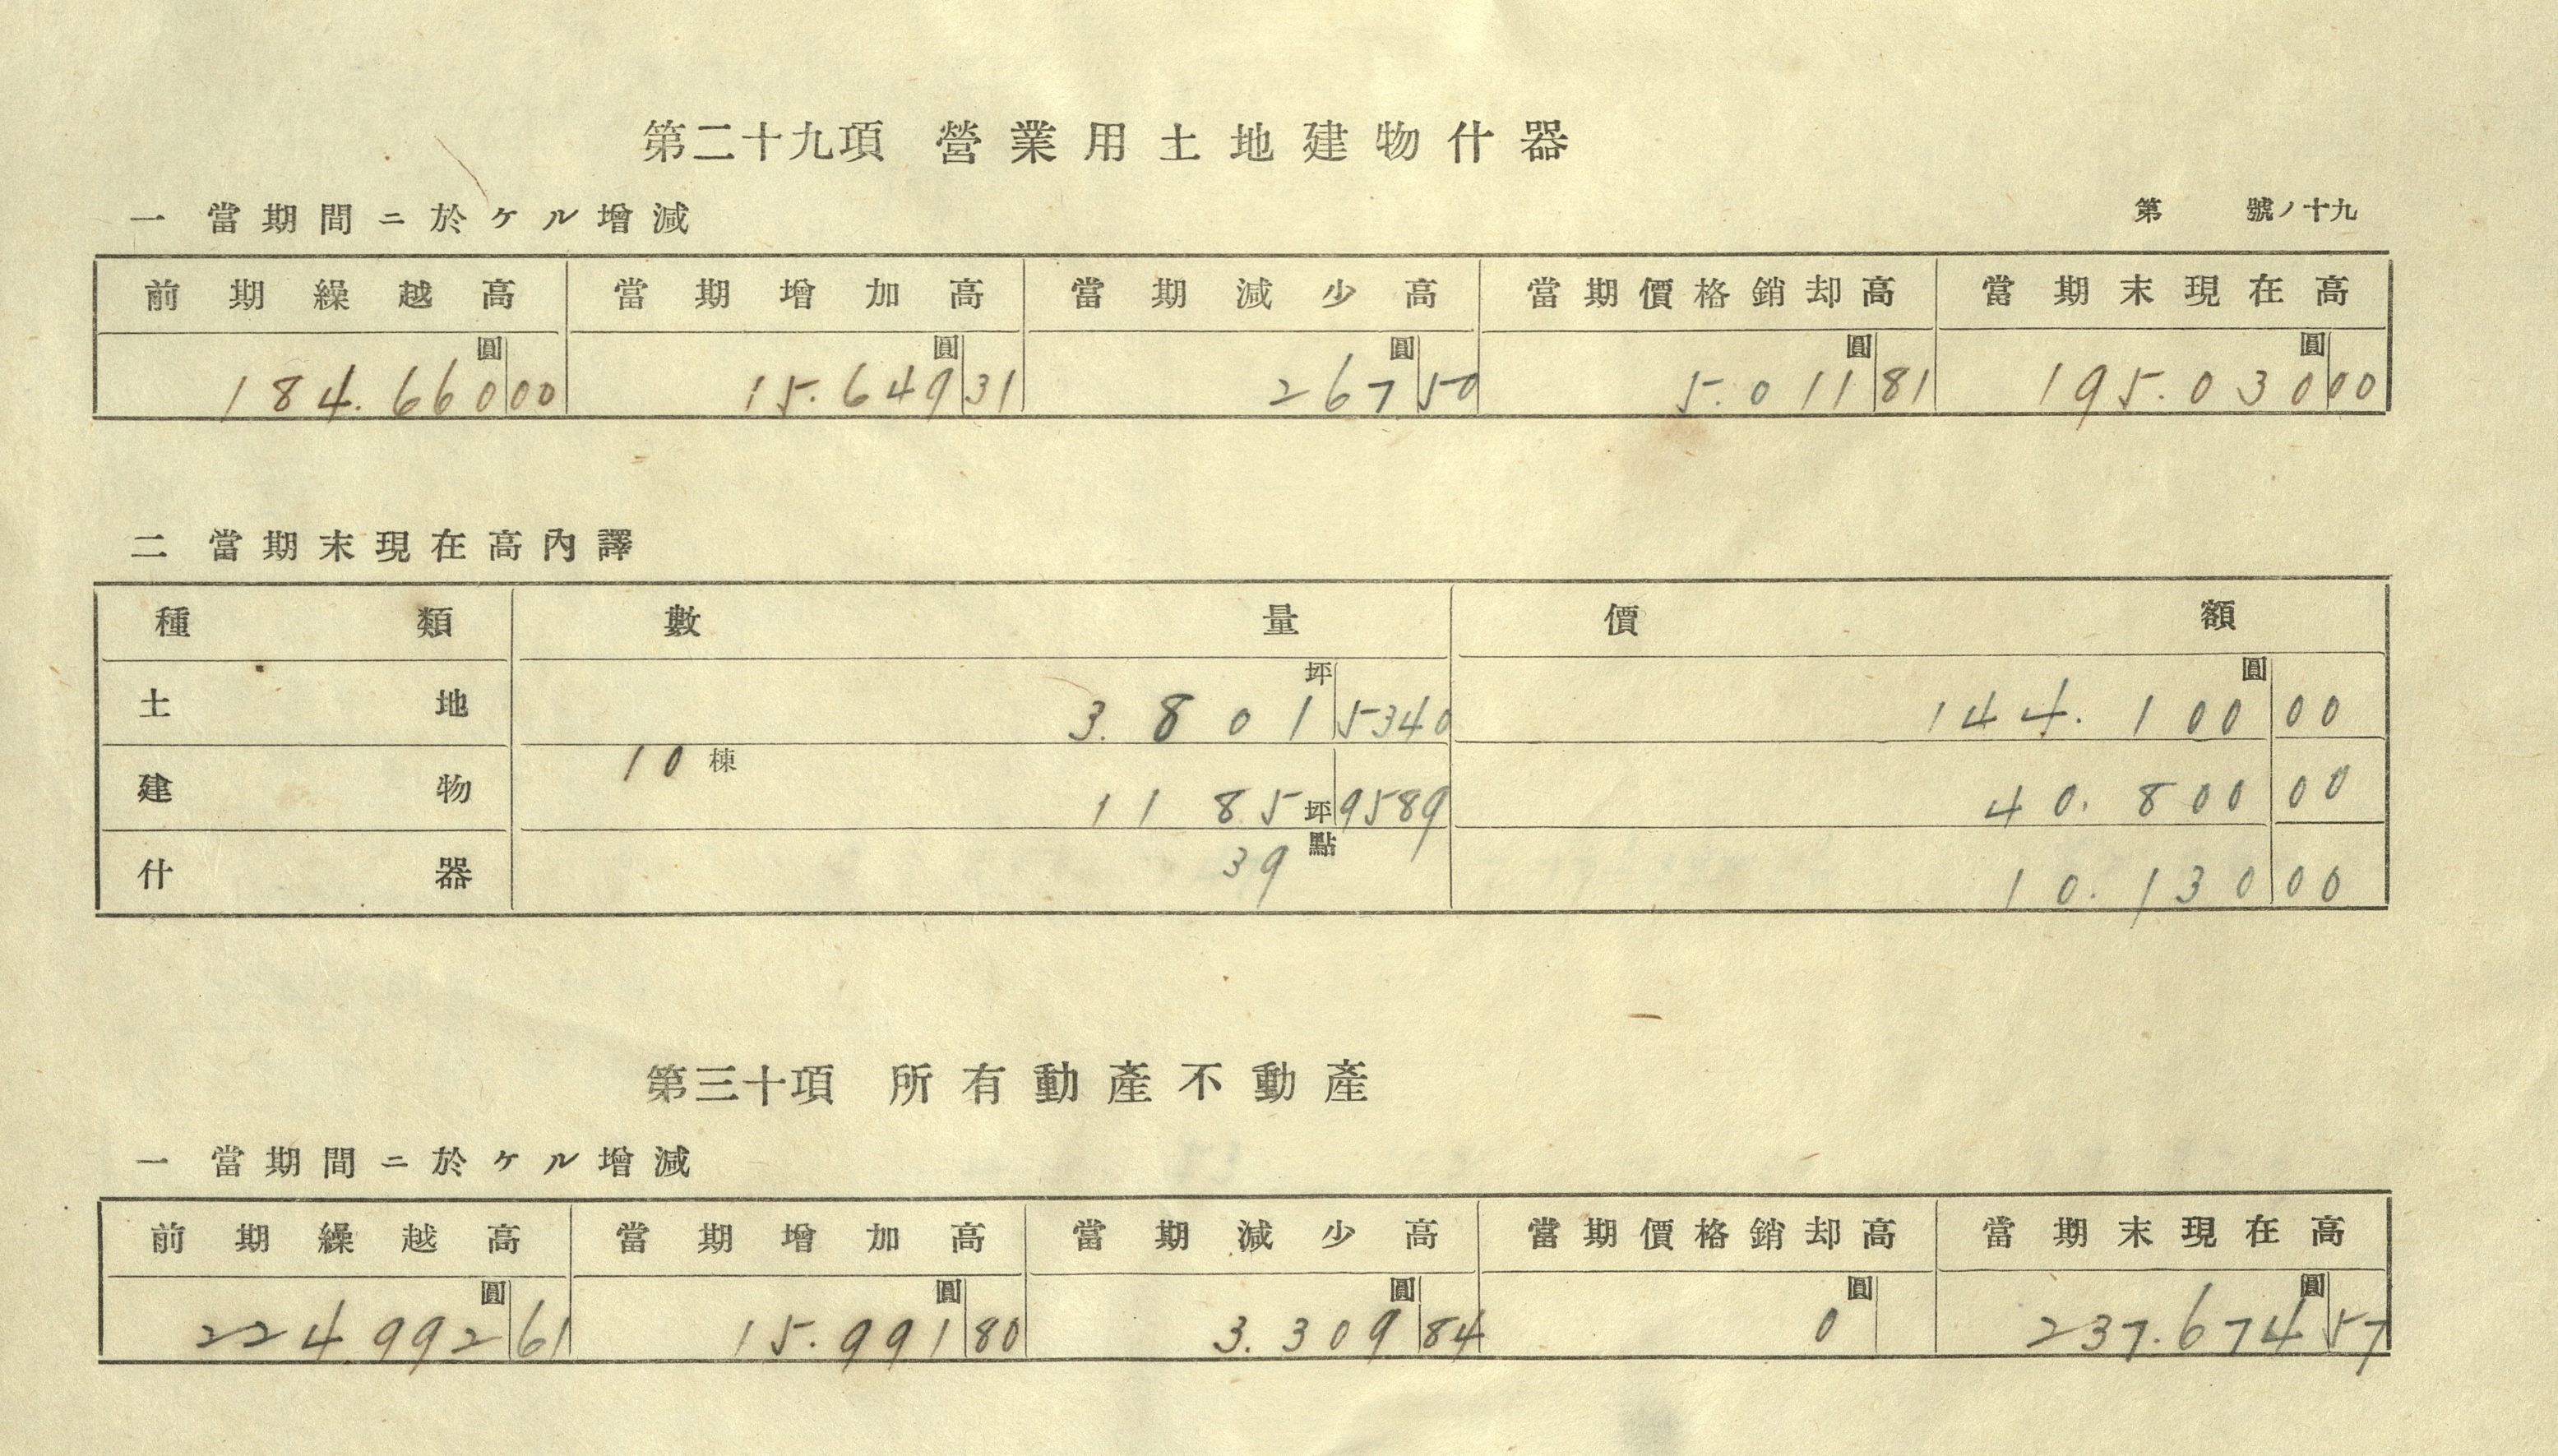 第二十九項 營業用土地建物什器
一 當期間ニ於ケル增減
第 號ノ十九
前期繰越高 當期增加高 當期減少高 當期價格銷却高 當期末現在高
圓 圓 圓 圓 圓
184.660 00 15.649 31 267 50 5.011 81 195.030 00
二 當期末現在高內譯
種類 數量 價額
坪 圓
土地 3.801 5340 144.100 00
10棟
建物 1185坪9589 40.800 00
什器 39點 10.130 00
第三十項 所有動產不動產
一 當期間ニ於ケル增減
前期繰越高 當期增加高 當期減少高 當期價格銷却高 當期末現在高
圓 圓 圓 圓 圓
224.992 61 15.991 80 3.309 84 0 237.674 57